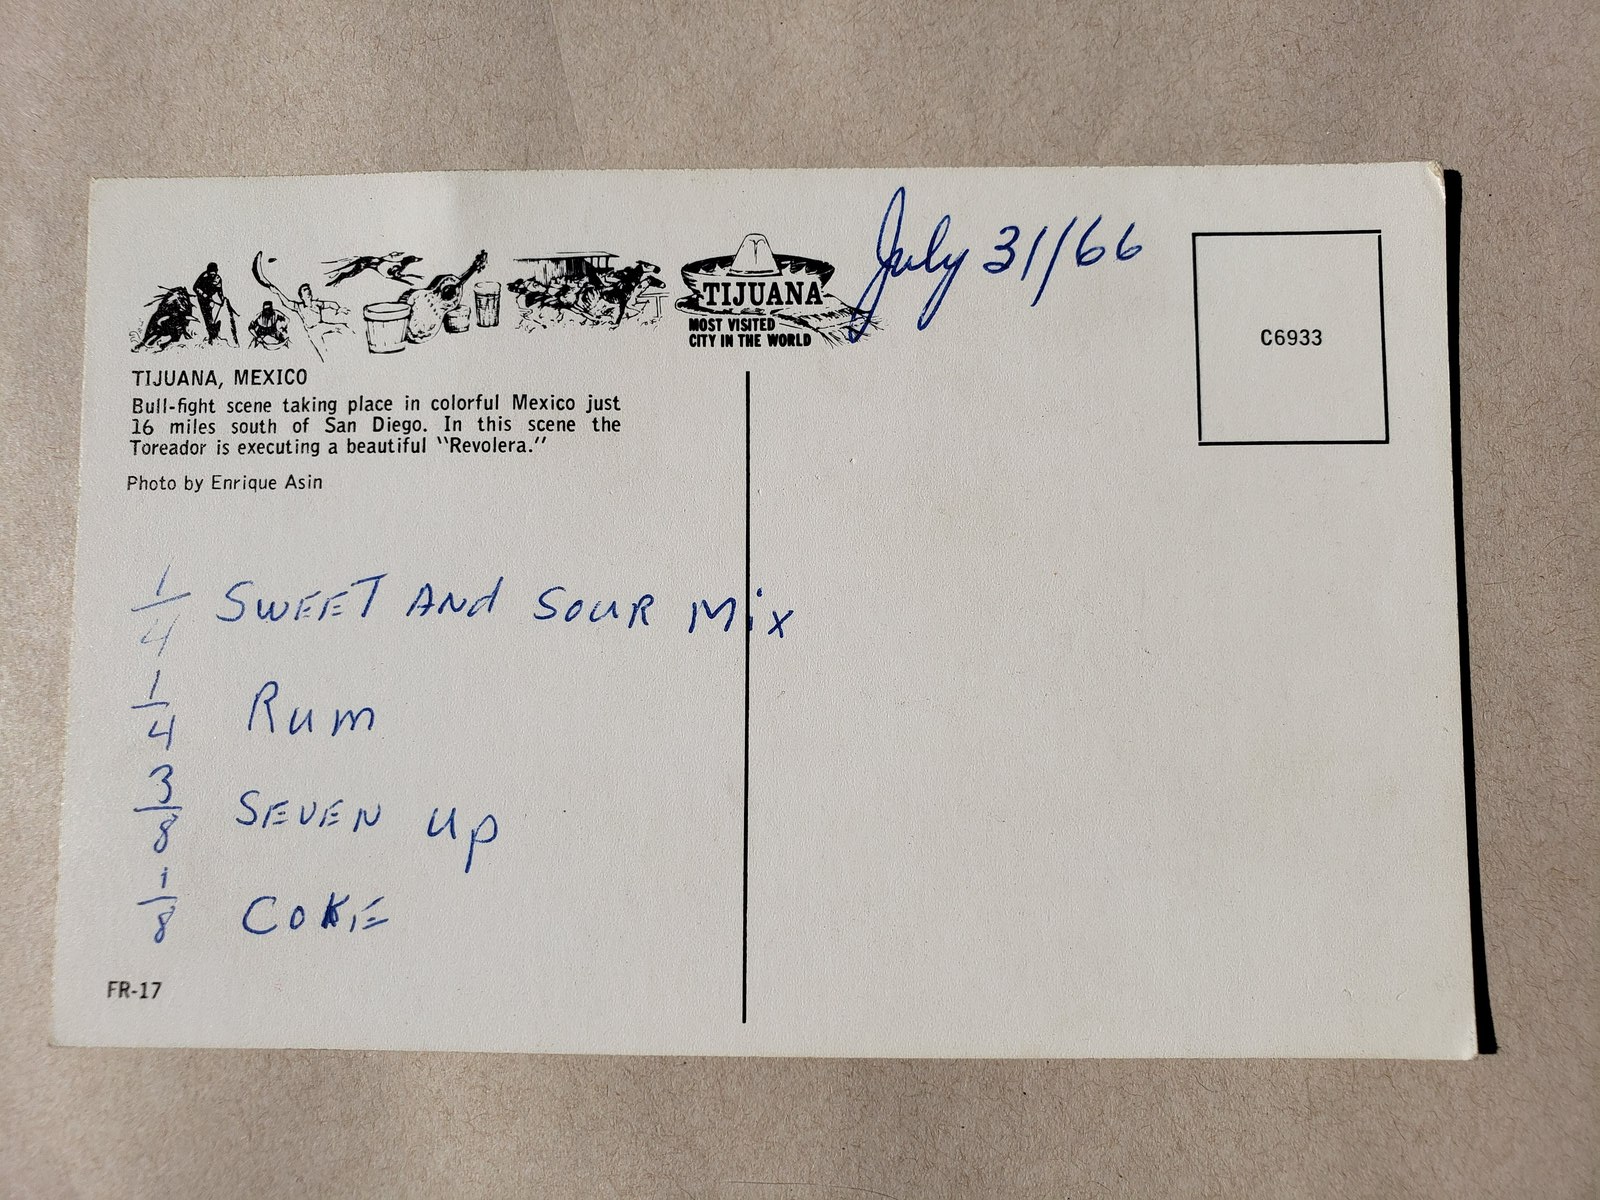 TIJUANA
MOST VISITED
CITY IN THE WORLD
July 31/66
C6933
TIJUANA, MEXICO
Bull-fight scene taking place in colorful Mexico just
16 miles south of San Diego. In this scene the
Toreador is executing a beautiful "Revolera."
Photo by Enrique Asin
1/4 SWEET AND SOUR MIX
1/4 RUM
3/8 SEVEN UP
1/8 COKE
FR-17